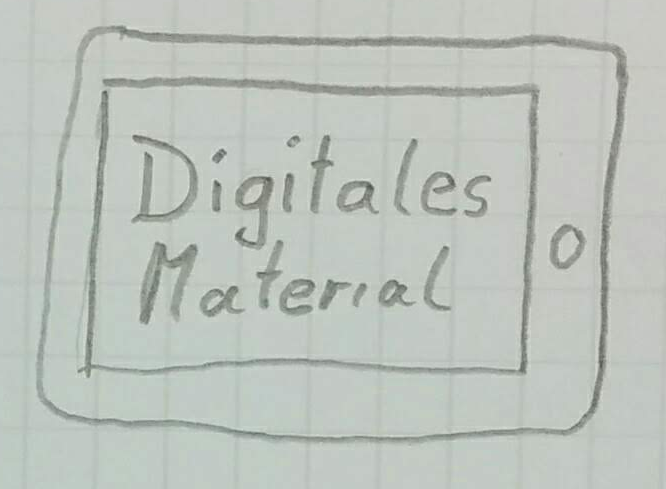 Digitales
Material